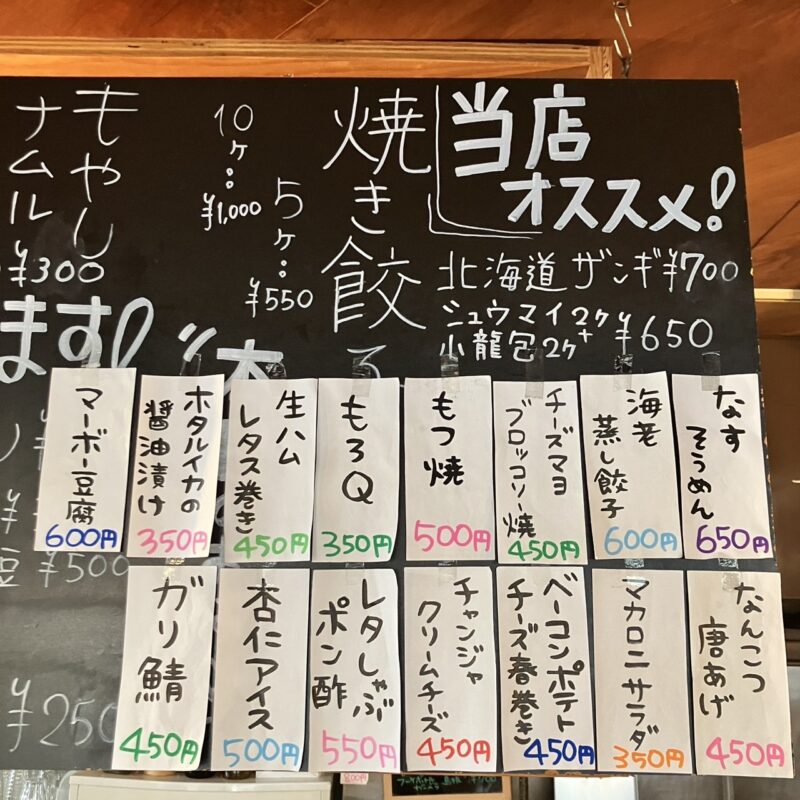 当店
オススメ!
北海道ザンギ ¥700
シュウマイ2ヶ+
小龍包2ヶ
¥650
焼き餃子
5ヶ:
¥550
10ヶ:
¥1,000
もやし
ナムル
¥300
ます!
¥500
¥250
なす
そうめん
650円
海老
蒸し餃子
600円
チーズマヨ
ブロッコリー焼
450円
もつ焼
500円
もろQ
350円
生ハム
レタス巻き
450円
ホタルイカの
醤油漬け
350円
マーボー豆腐
600円
なんこつ
唐あげ
450円
マカロニサラダ
350円
ベーコンポテト
チーズ春巻き
450円
チャンジャ
クリームチーズ
450円
レタしゃぶ
ポン酢
550円
杏仁アイス
500円
ガリ鯖
450円